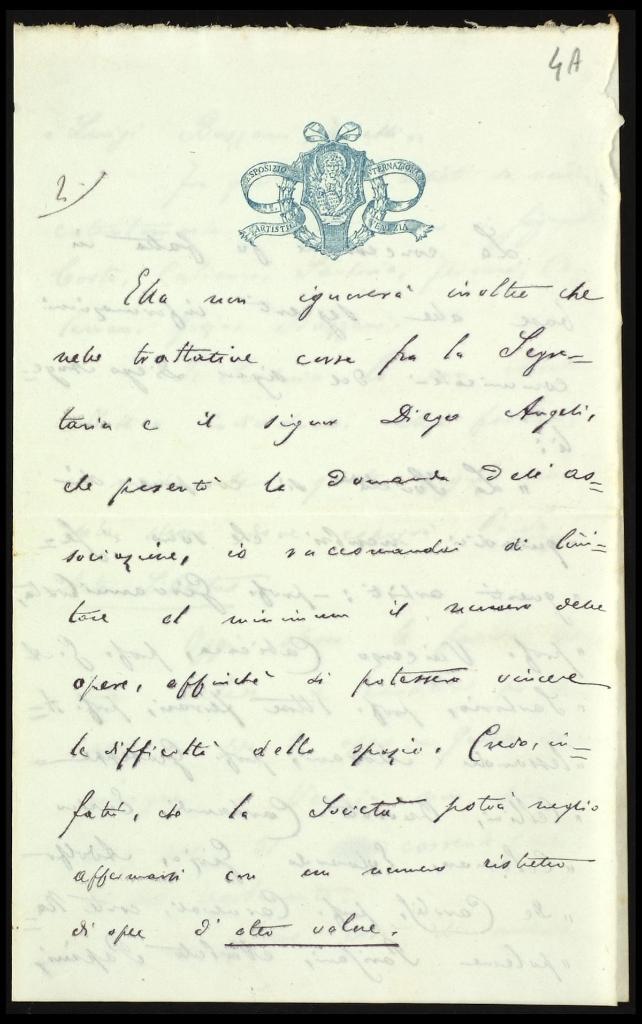 4A
ESPOSIZIONE INTERNAZIONALE
ARTISTICA VENEZIA
2)
Ella non ignorerà inoltre che
nelle trattative corse fra la Segre=
taria e il signor Diego Angeli,
che presentò la domanda dell'as=
sociazione, io raccomandai di limi=
tare al minimum il numero delle
opere, affinchè si potessero vincere
le difficoltà dello spazio. Credo, in=
fatti, che la Società potrà meglio
affermarsi con un numero ristretto
di opere d'alto valore.